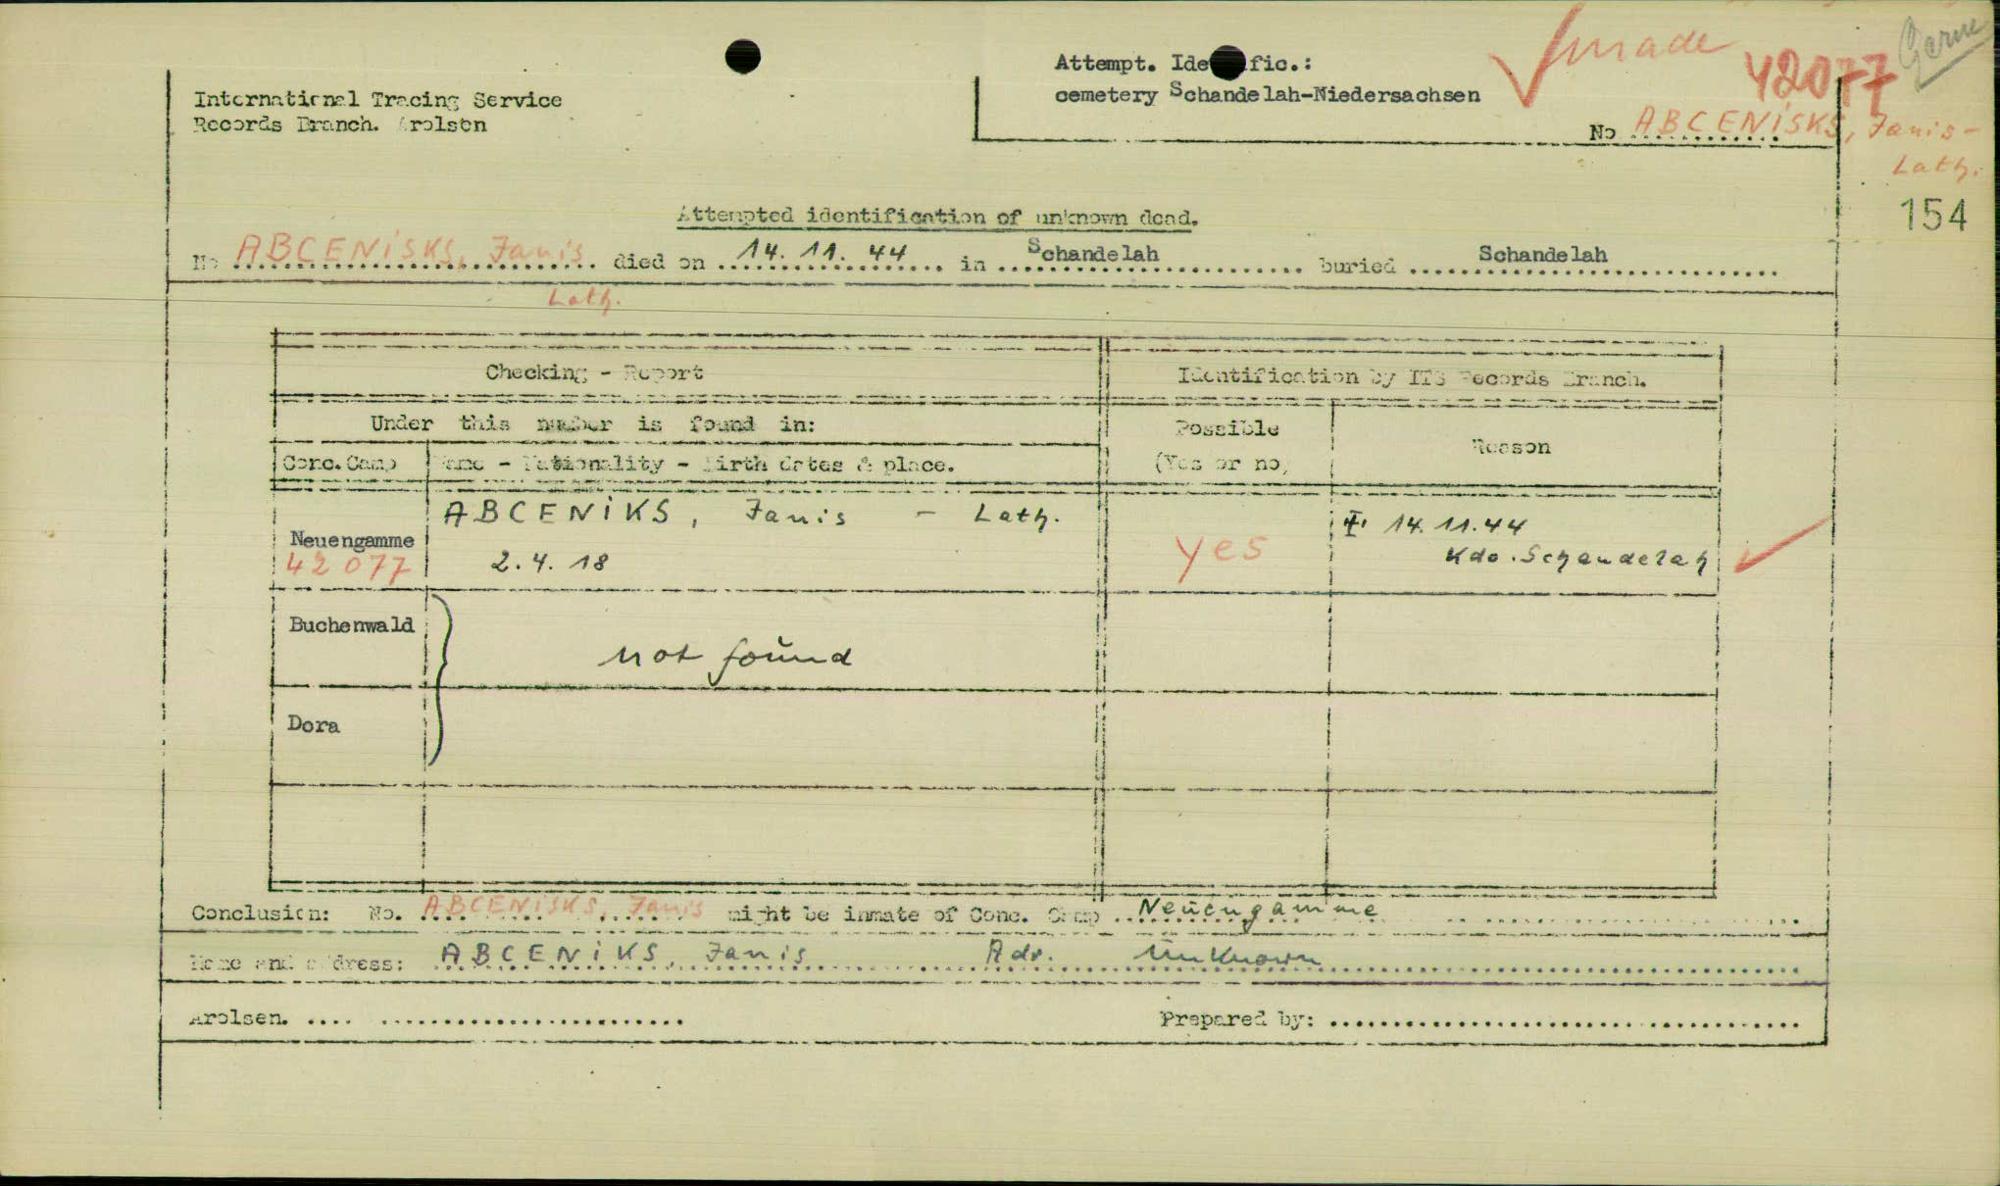 made
42077
Attempt. Identific.:
cemetery Schandelah-Niedersachsen
International Tracing Service
Records Branch. Arolsen
No ABCENISKS, Janis -
Lath.
154
Attempted identification of unknown dead.
No ABCENISKS, Janis died on 14.11.44 in Schandelah buried Schandelah
Lath.
Checking - Report Identification by ITS Records Branch.
Under this number is found in: Possible Reason
Conc. Camp Name - Nationality - Birth dates & place. (Yes or no)
ABCENIKS, Janis - Lath. 14.11.44
Neuengamme yes Kdo. Schandelah
42077 2.4.18
Buchenwald
not found
Dora
Conclusion: No. ABCENISKS, Janis might be inmate of Conc. Camp Neuengamme
Name and address: ABCENIKS, Janis Adr. unknown
Arolsen. Prepared by: